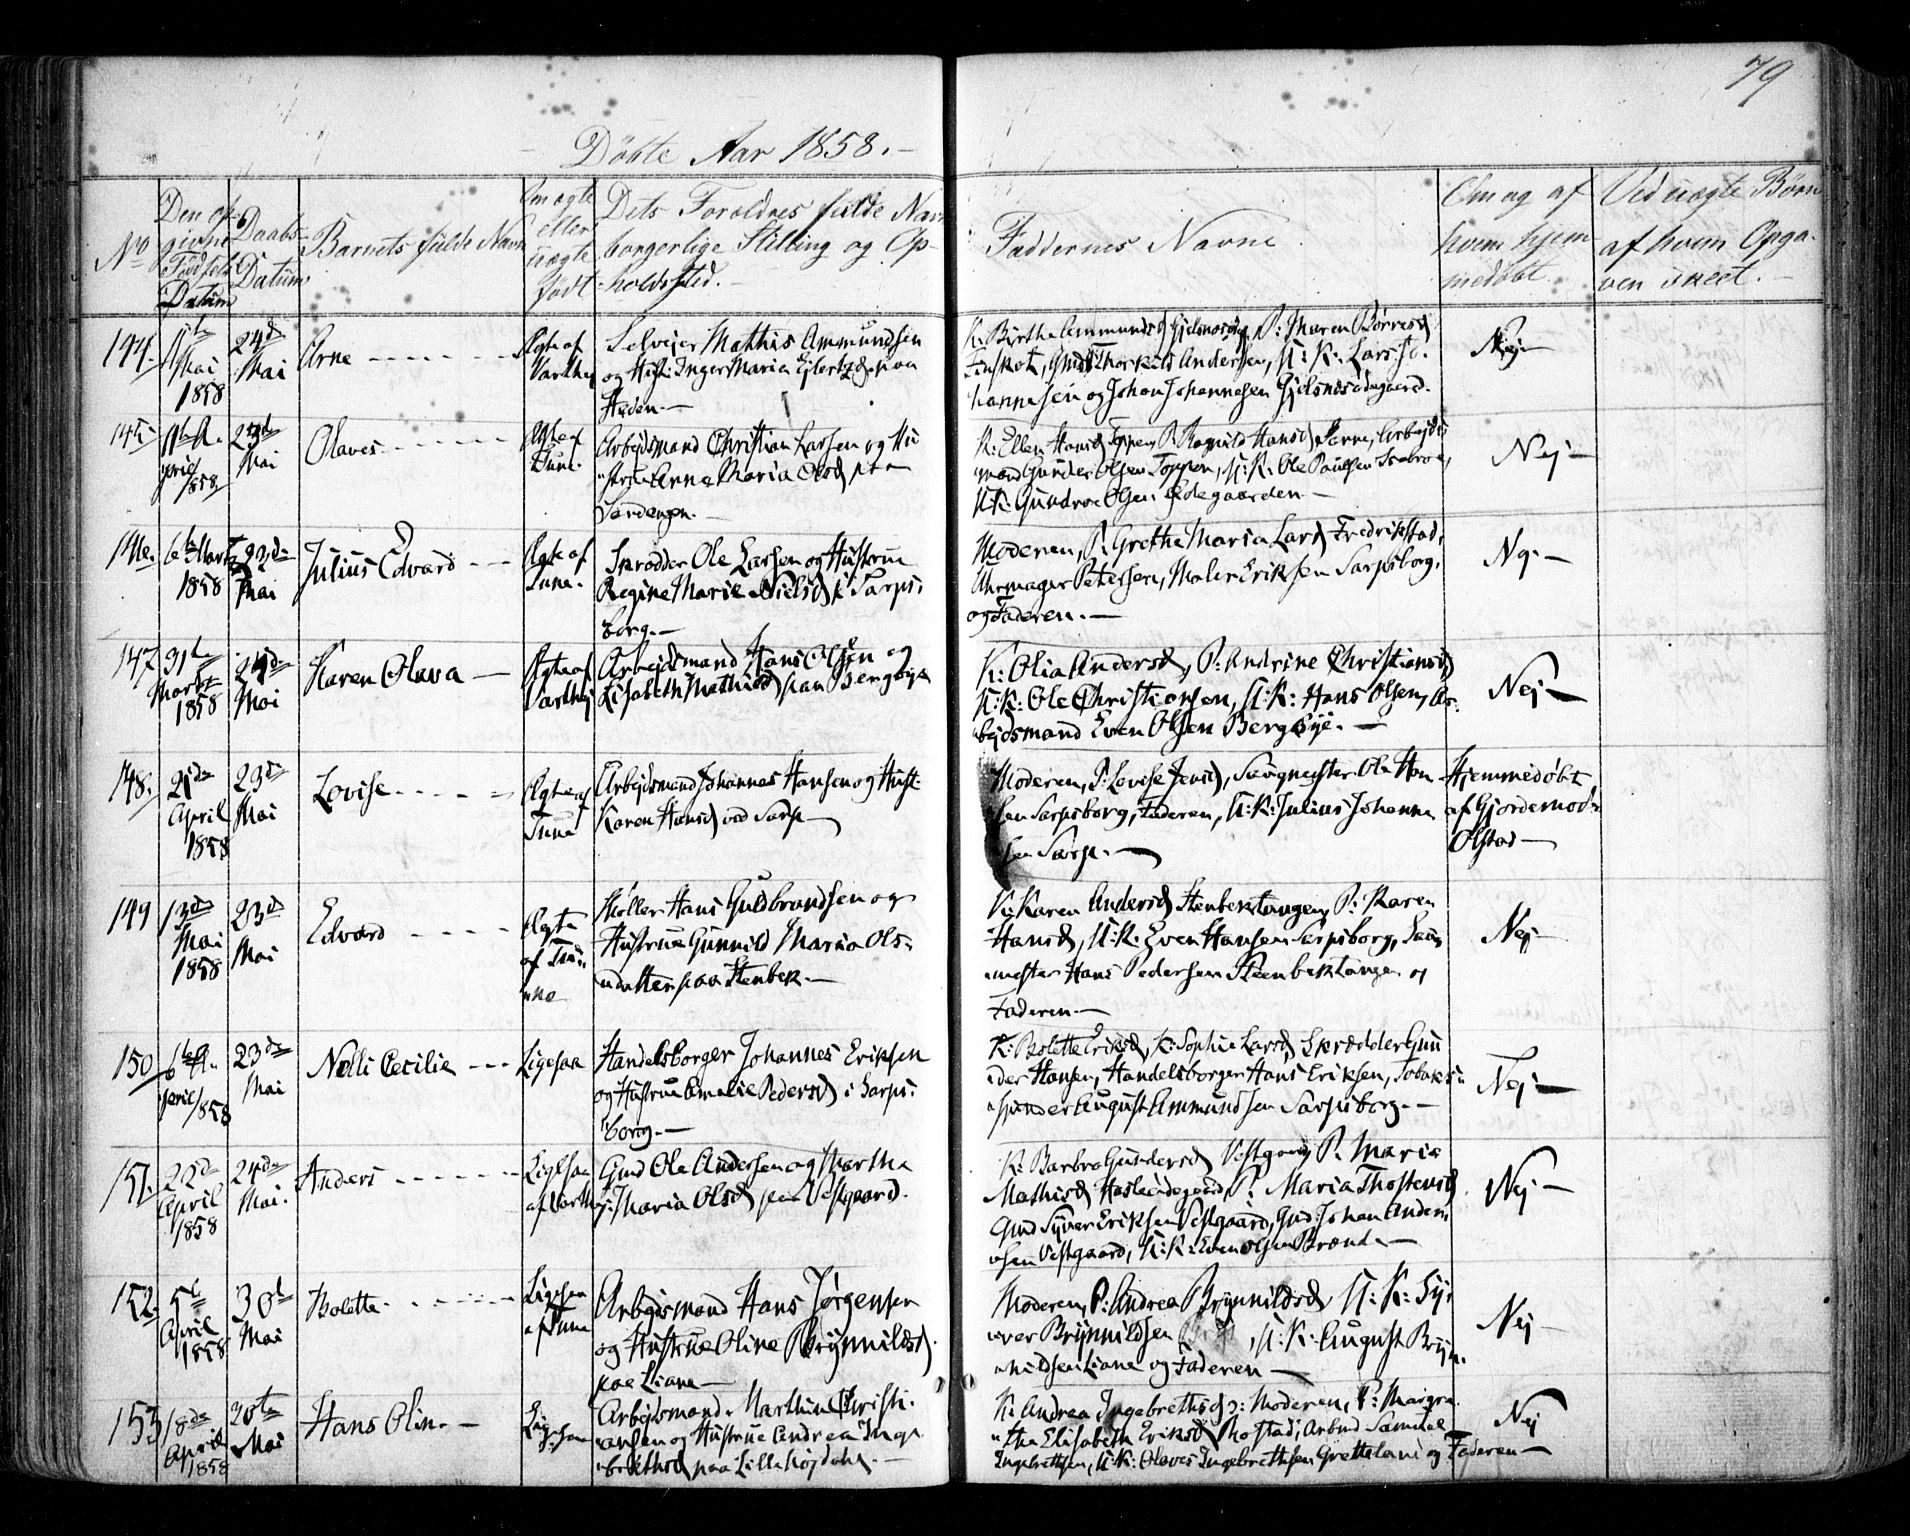 79
Döbte Aar 1858.-
No
Den op-
givne
Födsels
Datum
Daabs-
Datum
Barnets fulde Navn
Om ægte
eller
uægte
födt
Dets Foroldres fulde Navn
borgerlige Stilling og Op-
holdssted.-
Faddernes Navne
Om og af
hvem hjem
medöbt.
Ved uægte Börn
af hvem Opga-
ven skeet.-
144.
Mai
1858
24d
Mai
Arne
Ægte af
Varthej
Selvejer Mathis Ammundsen
og Hust: Inger Maria Ejlertsd paa
Heden.-
K: Birthe Ammundsd P: Maren Börresd
Gmd Thorkild Andersen, U: K: Lars Jo-
hannesen og Johan Johannesen Gjelsnesödegaard.
Nej-
145
April
1858
23d
Mai
Olaves
Ægte af
Tune.
Arbejdsmand Christian Larsen og Hu
strue Anne Maria Olsd paa
K: Ellen Hansd Toppen, P: Ragnild Hansd Arbejds
mand Gunder Olsen Toppen, U: K: Ole Paulsen
U: K: Olsen Ødegaarden.-
Nej-
146.
6te Marts
1858
23de
Mai
Julius Edvard
Ægte af
Tune.
Skrædder Ole Larsen og Hustrue
Regine Marie Nielsd i Sarps
borg.-
Moderen, P: Grethe Maria Larsd Fredrikstad,
Uhrmager Petersen, Maler Eriksen Sarpsborg,
og Faderen.-
Nej-
147
31te
Marts
1858
24de
Mai
Karen Olava
Ægte af
Varthej
Arbejdsmand Hans Olsen og
Lisabeth Mathisd paa Bergbye
K: Olia Andersd, P: Andrine Christiansd,
U: K: Ole Christiansen, U: K: Hans Olsen, Ar-
bejdsmand Even Olsen Bergbye.-
Nej-
148.
21de
April
1858
23de
Mai
Lovise
Ægte af
Tune
Arbejdsmand Johannes Hansen og Hust.
Karen Hansd ved Sarp
Moderen, P: Lovise Jensd, Saugmester Ole Han
sen Sarpsborg, Faderen, U: K: Julius Johanne
sen Sarp.-
Hjemmedöbt
af Gjordemod:
Olstad-
149
13de
Mai
1858
23d
Mai
Edvard
Ægte
af Tu
ne
Möller Hans Guldbrandsen og
Hustrue Gunnild Maria Ols-
datter paa Stenbek.-
K: Karen Andersd Stenbektangen, P: Karen
Hansd, U: K: Even Hansen Sarpsborg, Saug
mester Hans Pedersen Steenbektangen og
Faderen.-
Nej-
150
6te A
pril/858
23de
Mai
Nelli Cecilie
Ligesaa
Handelsborger Johannes Eriksen
og Hustrue Amalie Pedersd i Sarps:
borg.-
K: Bolette Eriksd, K: Sophie Larsd, Skrædder Gun
der Hansen, Handelsborger Hans Eriksen, Tobaks
spinder August Ammundsen Sarpsborg.-
Nej-
151.
22de
April
1858
24de
Mai.
Anders
Ligesaa
af Varthej
Gmd Ole Andersen og Martha
Maria Olsd paa Vestgaard.
K: Barbro Gundersd Vestgaard, P: Maria
Mathisd P: Maria Thostensd
Gmd Syver Eriksen Vestgaard, Gmd: Johan Ander-
sen Vestgaard, U: K: Even Olsen Brænde-
Nej-
152.
5te
April
1858
30te
Mai
Bolette
Ligesaa
af Tune
Arbejdsmand Hans Jørgensen
og Hustrue Oline Brynnildsd.
paa Liane-
Moderen, P: Andrea Brynnildsd, U: K: Sy-
ver Brynnildsen U: K: August Bryn-
nildsen Liane og Faderen-
Nej-
153
18de
April
1858
30te
Mai
Hans Olin.-
Ligesaa
Arbejdsmand Marthin Christi-
ansen og Hustrue Andrea Inge
brethsd paa Lille Højdahl.-
K: Andrea Ingebrethsd Moderen, P: Margre
the Elisabeth Eriksd Rostad, Arbmd Samuel
Ingebrethsen, U: K: Olaves Ingebrethsen Grotteland og Faderen-
Nej